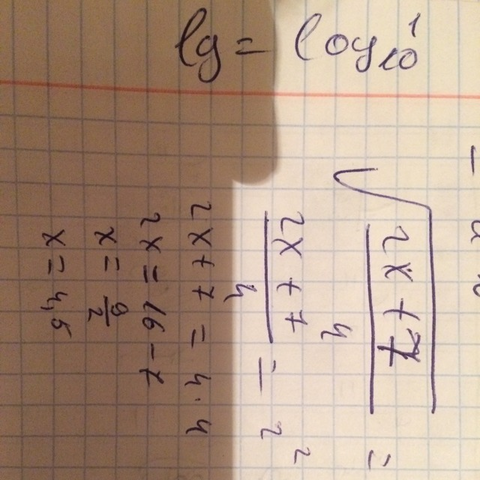 lg = log₁₀ 1
√((2x + 7)/4) =
(2x + 7)/4 = 2²
2x + 7 = 4·4
2x = 16 − 7
x = 9/2
x = 4,5